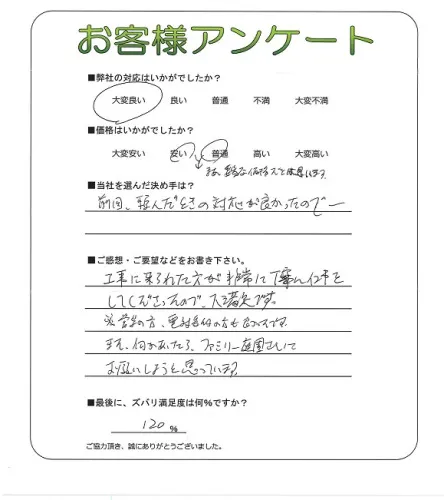 お客様アンケート
■弊社の対応はいかがでしたか？
大変良い 良い 普通 不満 大変不満
■価格はいかがでしたか？
大変安い 安い 普通 高い 大変高い
まあ、な価格だとは思います。
■当社を選んだ決め手は？
前回、頼んだときの対応が良かったのでー
■ご感想・ご要望などをお書き下さい。
工事に来られた方が非常に丁寧な仕事を
してくださったので、大満足です。
営業の方、電対応の方も良いです。
また、何かあったら、ファミリー庭園さんに
お払いしようと思っています。
■最後に、ズバリ満足度は何%ですか？
120 %
ご協力頂き、誠にありがとうございました。